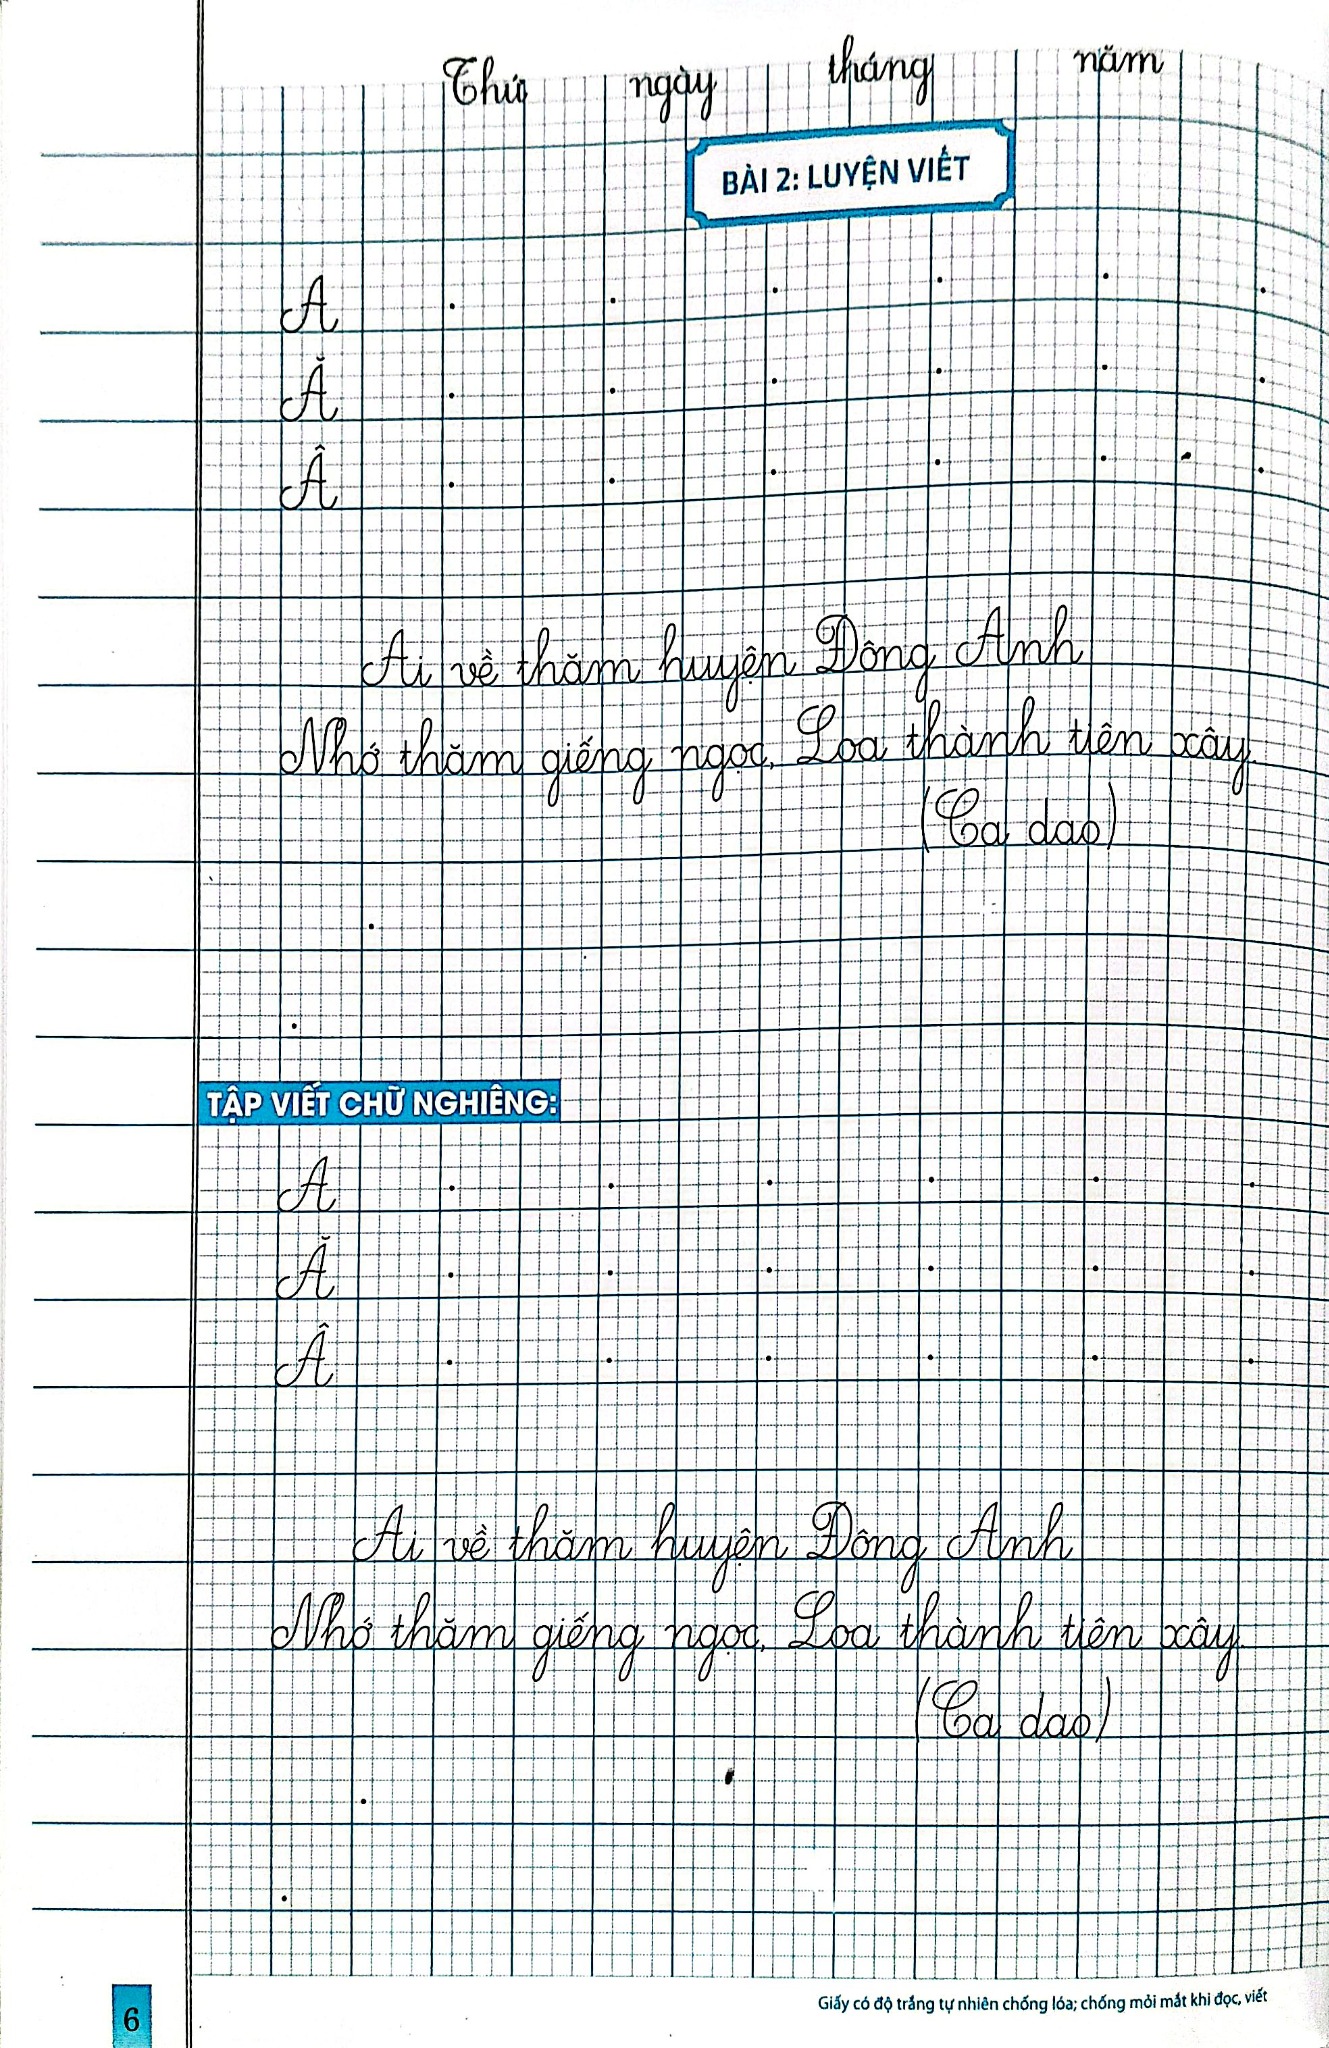 Thứ ngày tháng năm
BÀI 2: LUYỆN VIẾT
A
Ă
Â
Ai về thăm huyện Đông Anh
Nhớ thăm giếng ngọc, Loa thành tiên xây.
(Ca dao)
TẬP VIẾT CHỮ NGHIÊNG:
A
Ă
Â
Ai về thăm huyện Đông Anh
Nhớ thăm giếng ngọc, Loa thành tiên xây.
(Ca dao)
Giấy có độ trắng tự nhiên chống lóa; chống mỏi mắt khi đọc, viết
6